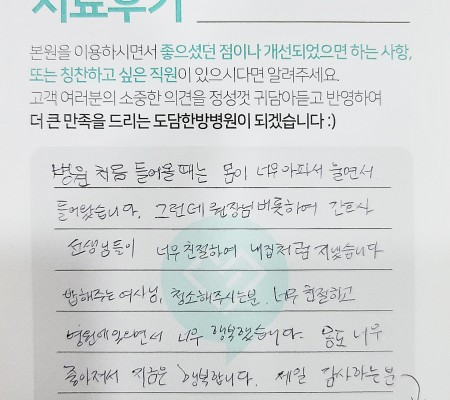 치료후기
본원을 이용하시면서 좋으셨던 점이나 개선되었으면 하는 사항,
또는 칭찬하고 싶은 직원이 있으시다면 알려주세요.
고객 여러분의 소중한 의견을 정성껏 귀담아듣고 반영하여
더 큰 만족을 드리는 도담한방병원이 되겠습니다 :)
병원 처음 들어올 때는 몸이 너무 아파서 울면서
들어왔습니다. 그런데 원장님 비롯하여 간호사
선생님들이 너무 친절하여 내집처럼 지냈습니다
밥해주는 여사님, 청소해주시는분. 너무 친절하고
병원에있으면서 너무 행복했습니다. 몸도 너무
좋아져서 지금은 행복합니다. 제일 감사하는분